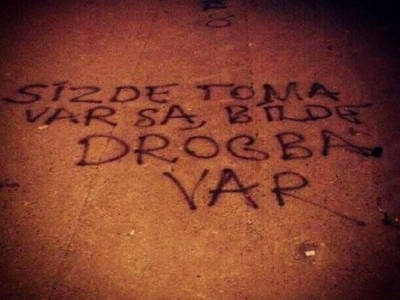 SİZDE TOMA
VARSA, BİLDE
DROGBA
VAR